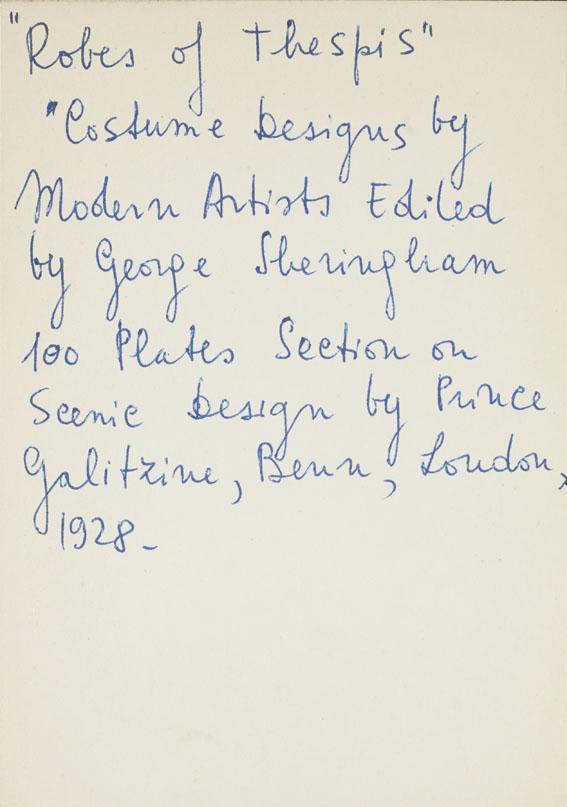 "Robes of Thespis"
"Costume Designs by
Modern Artists Edited
by George Sheringham
100 Plates Section on
Scenic Design by Prince
Galitzine, Benn, London,
1928-